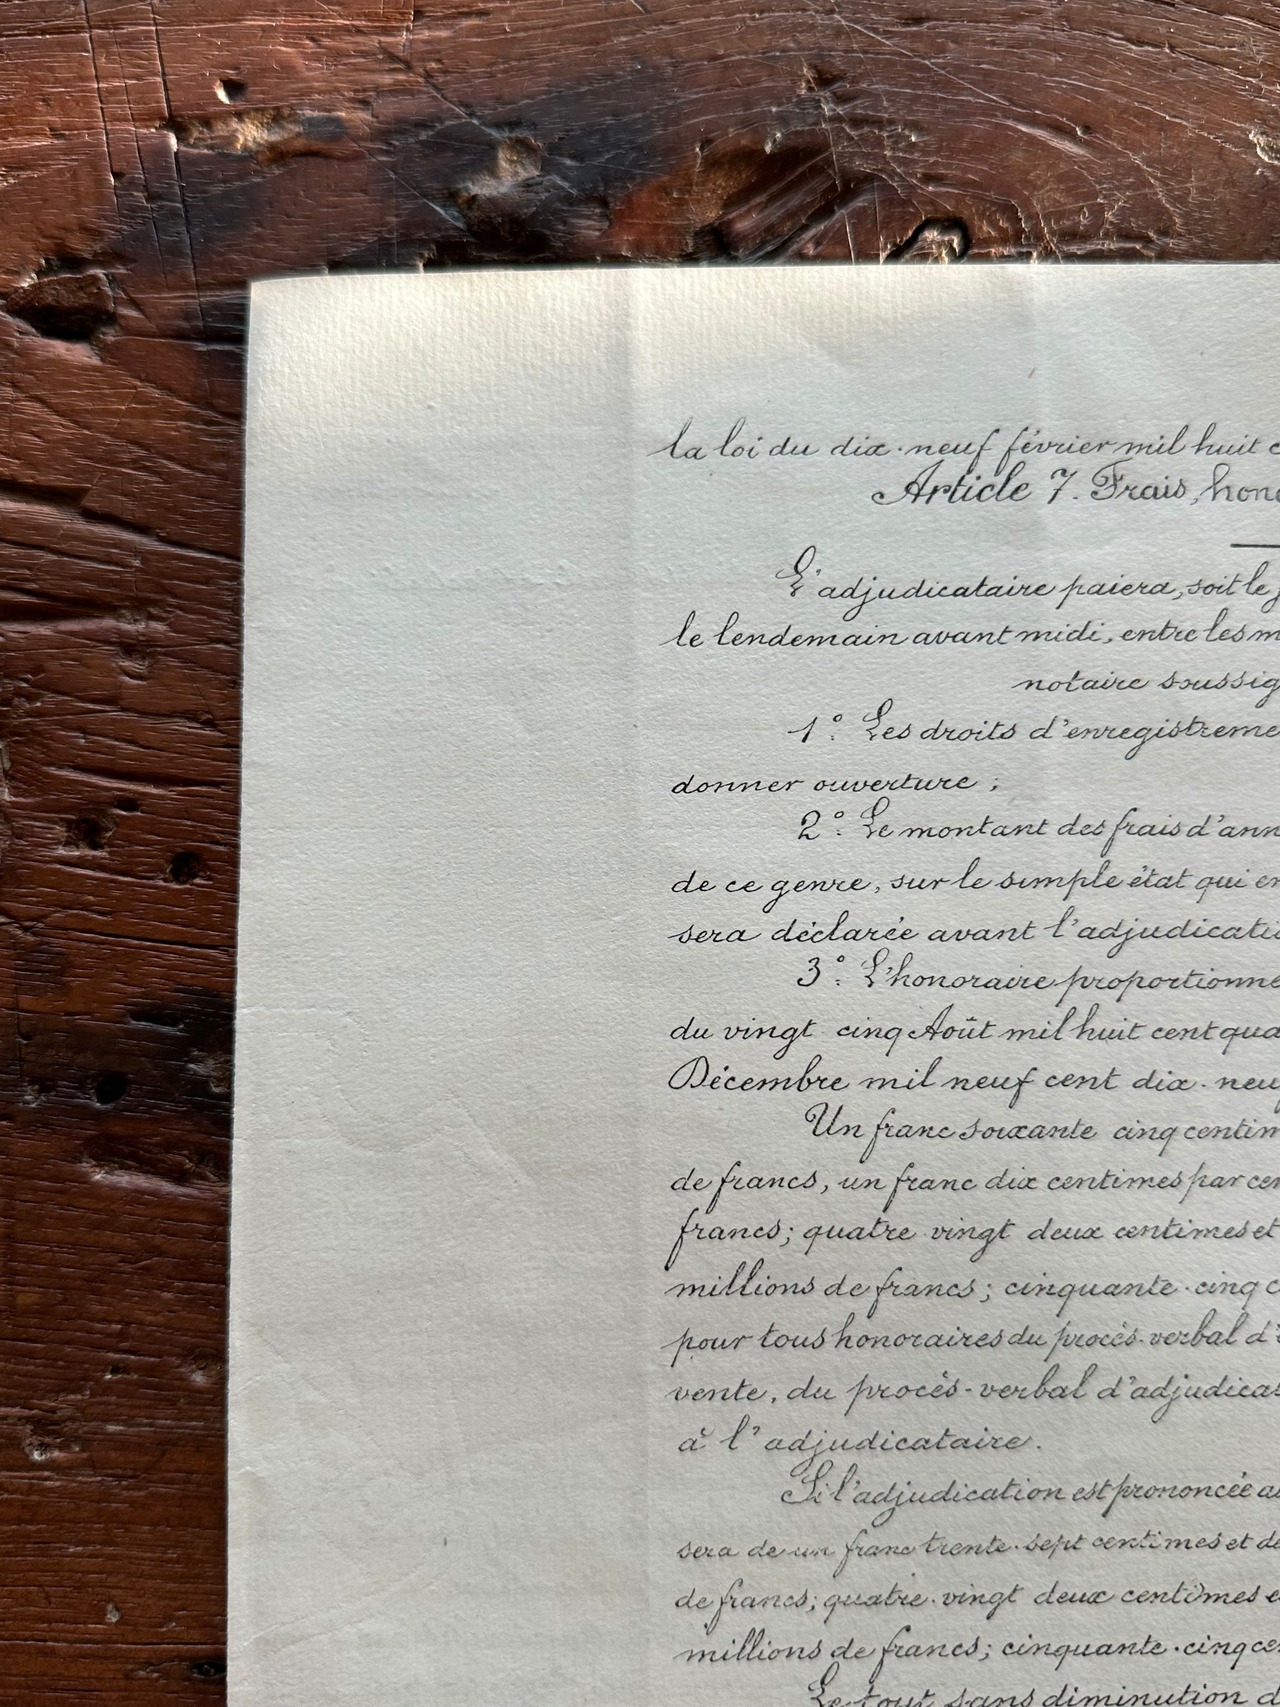 la loi du dix-neuf février mil huit
Article 7. Frais, hon
L'adjudicataire paiera, soit le
le lendemain avant midi, entre les m
notaire soussig
1°. Les droits d'enregistreme
donner ouverture ;
2°. Le montant des frais d'ann
de ce genre, sur le simple état qui en
sera déclarée avant l'adjudicati
3°. L'honoraire proportionne
du vingt cinq Août mil huit cent qua
Décembre mil neuf cent dix-neu
Un franc soixante cinq centim
de francs, un franc dix centimes par cen
francs; quatre vingt deux centimes et
millions de francs; cinquante-cinq c
pour tous honoraires du procès-verbal d'
vente, du procès-verbal d'adjudicat
à l'adjudicataire.
Si l'adjudication est prononcée a
sera de un franc trente-sept centimes et de
de francs; quatre-vingt deux centimes e
millions de francs; cinquante-cinq ce
Le tout sans diminution d